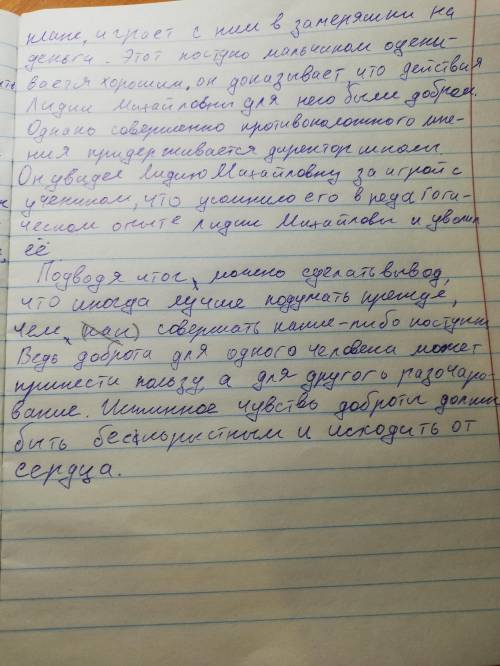 плане, играет с ним в замеряшки на
деньги. Этот поступо мальчиком оцени-
вается хорошим, он доказывает, что действия
Лидии Михайловны для него были добром.
Однако совершенно противоположного мне-
ния придерживается директор школы.
Он увидел Лидию Михайловну за игрой с
учеником, что усомнило его в педагоги-
ческом опыте Лидии Михайловы и уволил
её.
Подводя итог, можно сделать вывод,
что иногда лучше подумать прежде,
чем, (как) совершать какие-либо поступки
Ведь доброта для одного человека может
принести пользу, а для другого разочаро-
вание. Истинное чувство доброты должно
быть бескорыстным и исходить от
сердца.